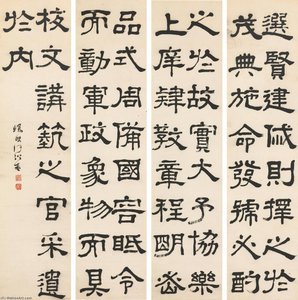 選賢建戚則宅之於
茂典施命發號必酌
之於故實大予協樂
上庠肆教章程明密
品式周備國容眂令
而動軍政象物而具
校文講蓺之官采遺
於內